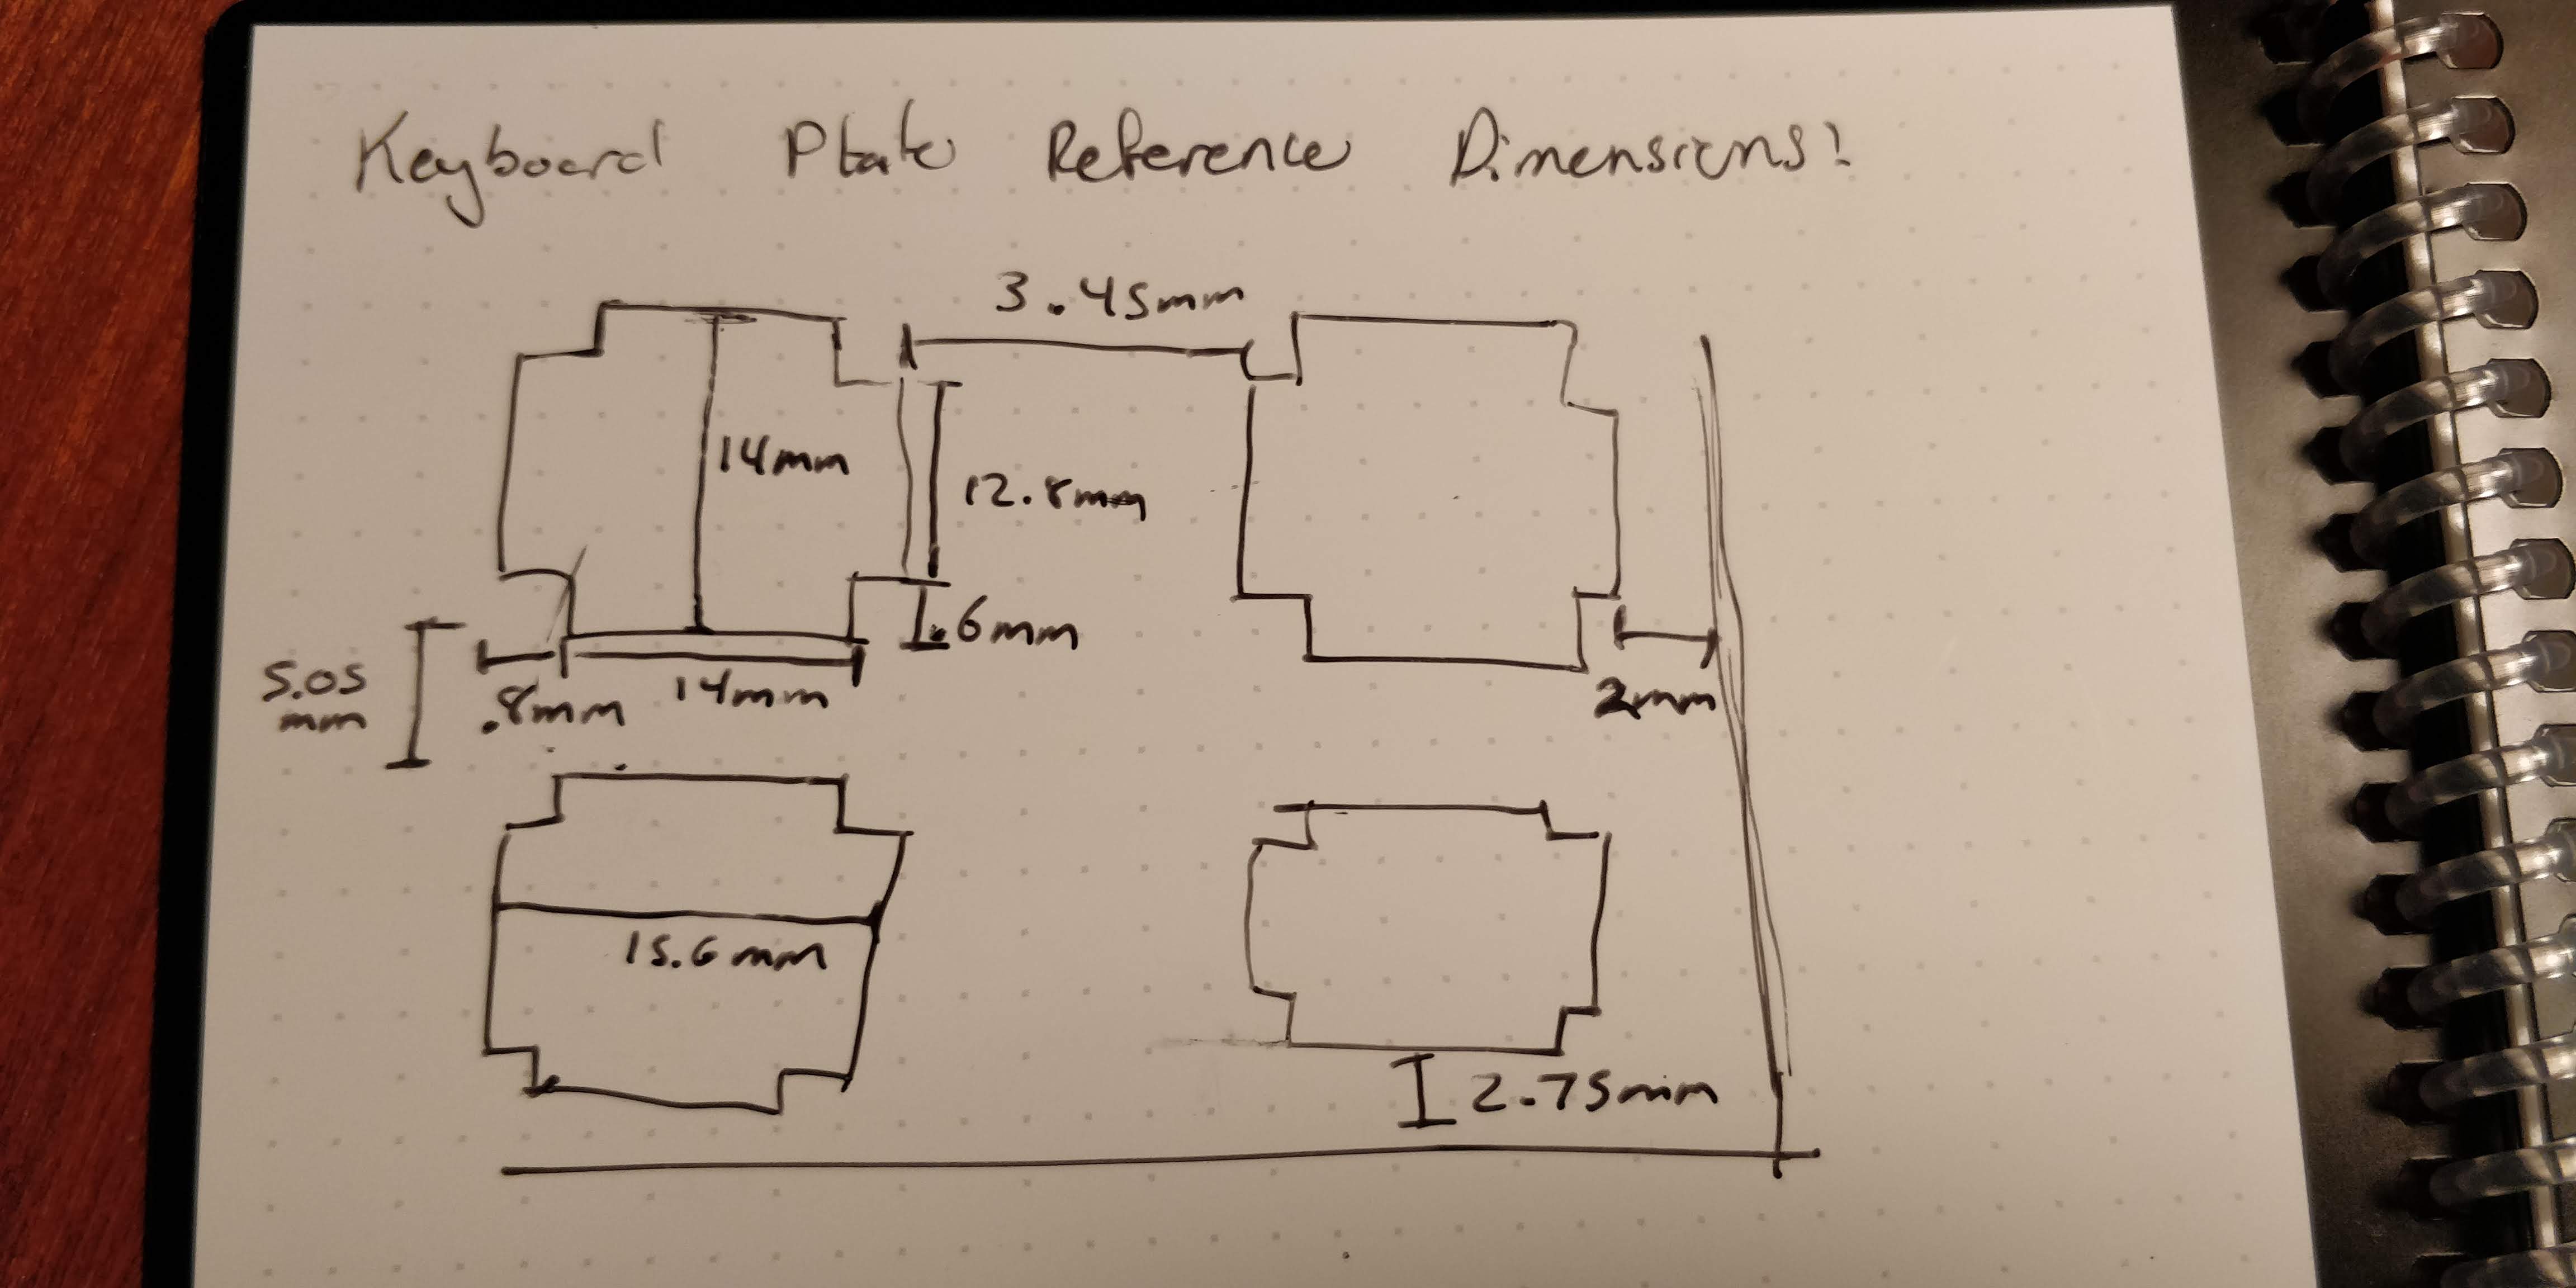 Keyboard Plate Reference Dimensions!
3.45mm
14mm
12.8mm
.6mm
5.05
mm
.8mm
14mm
2mm
15.6mm
2.75mm